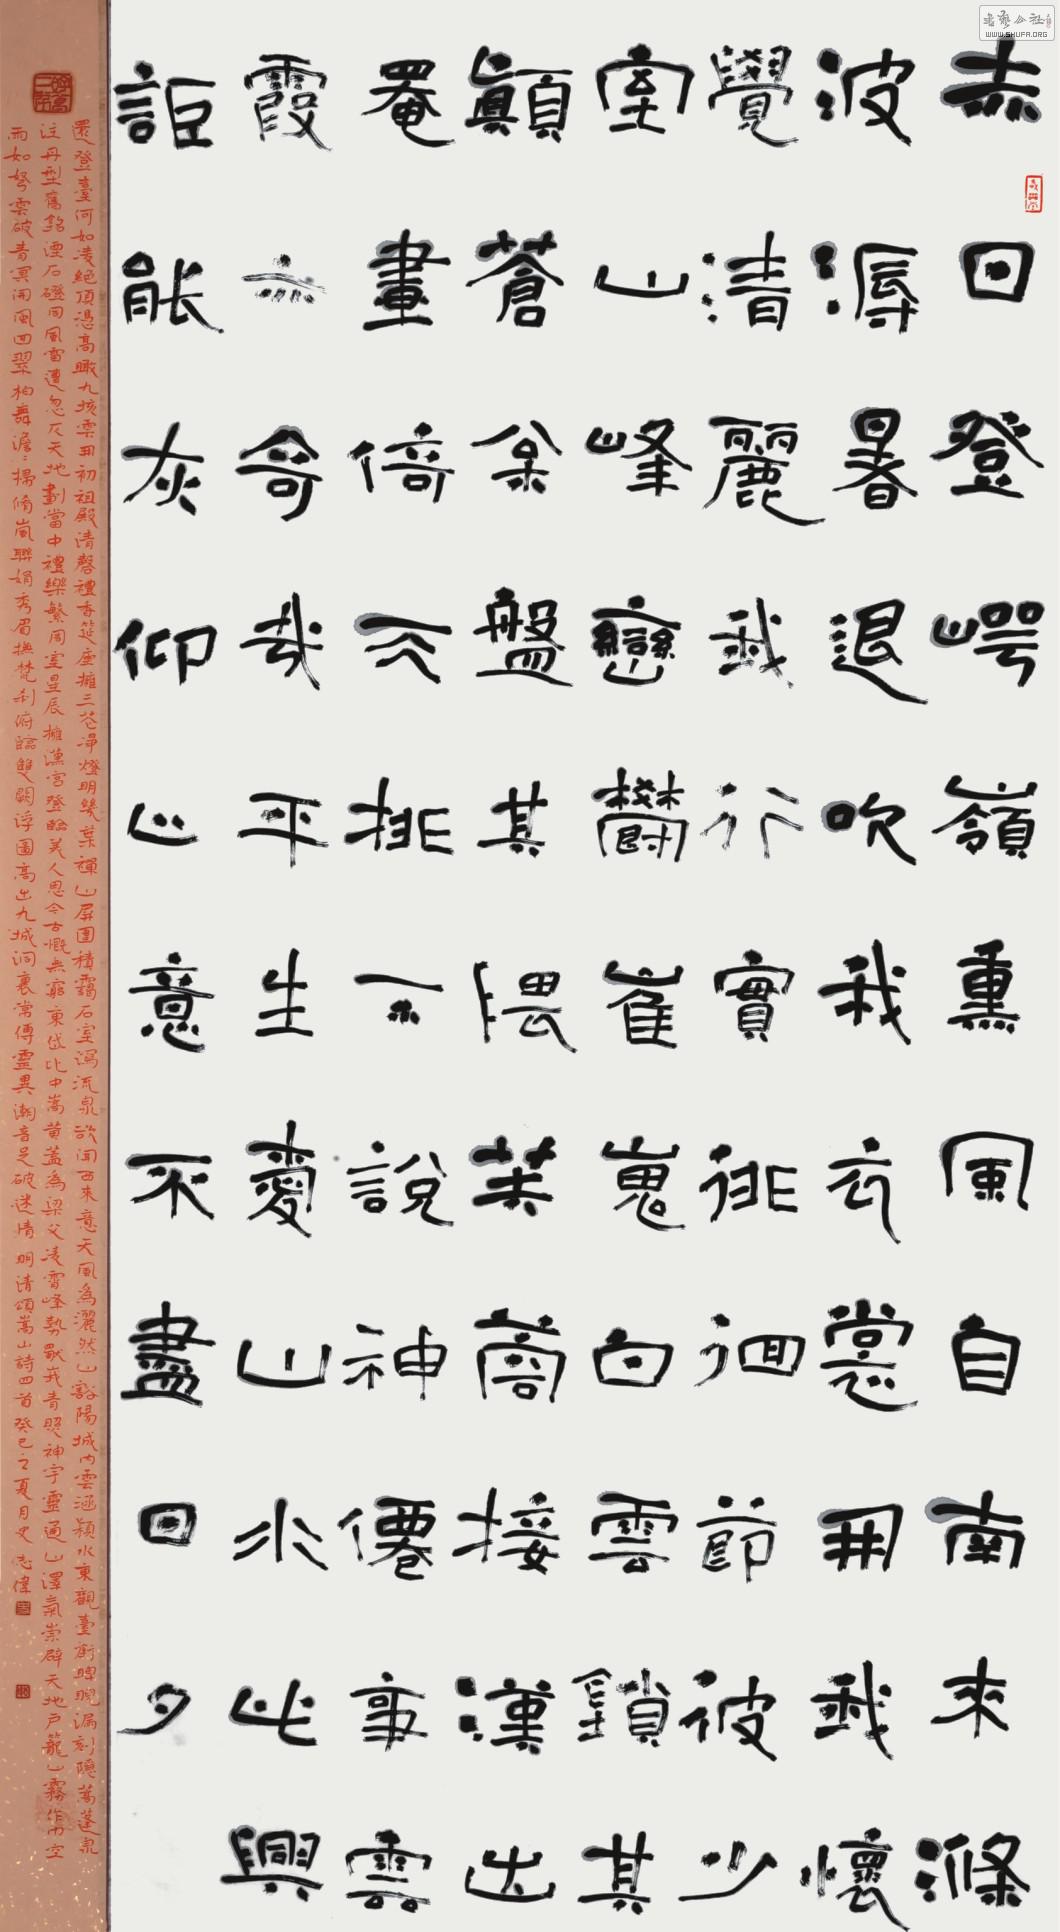 書藝公社
WWW.SHUFA.ORG
赤回登崿嶺熏風自南來滌
波溽暑退吹我衣裳開我懷
覺清麗我行實徘徊節彼少
室山峰巒鬱崔嵬白雲鎖其
顛蒼盤其隈芙蓉接漢出
罨畫倚天挑不說神僊事雲
霞亦奇哉平生愛山水此興
詎能灰仰止意不盡回夕
還登臺何如凌絕頂憑高瞰九垓雲開初祖殿清磬禮香筵座擁三花淨燈明幾葉禪山屏圍積靄石室瀉流泉欲聞西來意天風為灑然山谿陽城內雲涵潁水東觀臺衡睥睨漏刻隱蒿蓬泉
注丹型舊銘湮石磴同風雷遭忽仄天地劃當中禮樂繁周室星辰擁漢宮登臨美人思今古慨無窮東岱比中嵩黃蓋為梁父凌霄峰勢峩青照神宇靈通山澤氣崇辟天地戶籠山霧作雨空
而如弩雲破青冥開風回翠柏舞澹澹掃脩嵐聯娟秀眉撫梵剎俯臨雙闕浮圖高出九城洞裏常傳靈異潮音足破迷情 明清頌嵩山詩四首癸巳之夏月史志偉